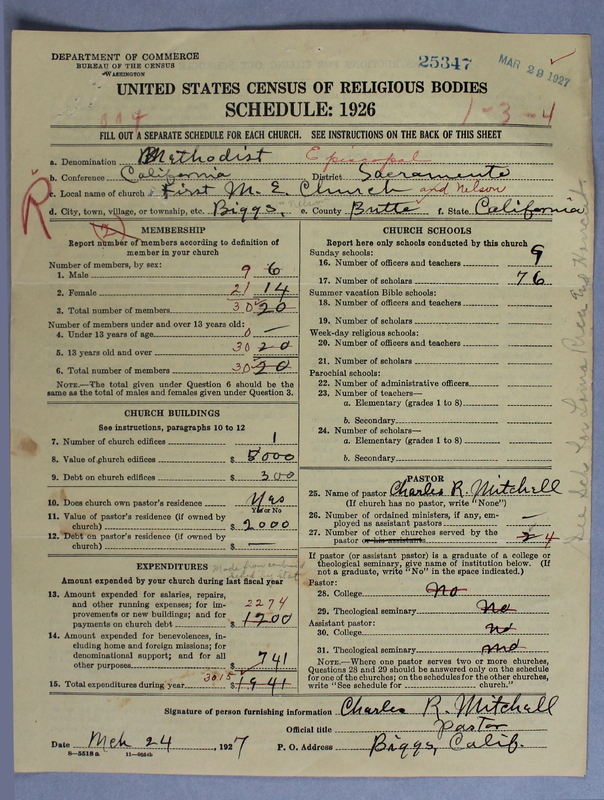 DEPARTMENT OF COMMERCE
BUREAU OF THE CENSUS
WASHINGTON
25347
MAR 29 1927
UNITED STATES CENSUS OF RELIGIOUS BODIES
SCHEDULE: 1926
1-3-4
FILL OUT A SEPARATE SCHEDULE FOR EACH CHURCH. SEE INSTRUCTIONS ON THE BACK OF THIS SHEET
a. Denomination Methodist Episcopal
b. Conference California District Sacramento
c. Local name of church First M. E. Church and Nelson
d. City, town, village, or township, etc. Biggs, e. County Butte f. State California
R
MEMBERSHIP
Report number of members according to definition of member in your church
Number of members, by sex:
1. Male 9 6
2. Female 21 14
3. Total number of members 30 20
Number of members under and over 13 years old:
4. Under 13 years of age 0 —
5. 13 years old and over 30 20
6. Total number of members 30 20
NOTE.—The total given under Question 6 should be the same as the total of males and females given under Question 3.
CHURCH BUILDINGS
See instructions, paragraphs 10 to 12
7. Number of church edifices 1
8. Value of church edifices $ 5000
9. Debt on church edifices $ 300
10. Does church own pastor's residence Yes
Yes or No
11. Value of pastor's residence (if owned by church) $ 2000
12. Debt on pastor's residence (if owned by church) $ —
EXPENDITURES
Amount expended by your church during last fiscal year
13. Amount expended for salaries, repairs, and other running expenses; for improvements or new buildings; and for payments on church debt 2274 $ 1200
14. Amount expended for benevolences, including home and foreign missions; for denominational support; and for all other purposes $ 741
15. Total expenditures during year 3015 $ 1941
CHURCH SCHOOLS
Report here only schools conducted by this church
Sunday schools:
16. Number of officers and teachers 9
17. Number of scholars 76
Summer vacation Bible schools:
18. Number of officers and teachers
19. Number of scholars
Week-day religious schools:
20. Number of officers and teachers
21. Number of scholars
Parochial schools:
22. Number of administrative officers
23. Number of teachers—
a. Elementary (grades 1 to 8)
b. Secondary
24. Number of scholars—
a. Elementary (grades 1 to 8)
b. Secondary
PASTOR
25. Name of pastor Charles R. Mitchell
(If church has no pastor, write "None")
26. Number of ordained ministers, if any, employed as assistant pastors —
27. Number of other churches served by the pastor or his assistants 2 4
If pastor (or assistant pastor) is a graduate of a college or theological seminary, give name of institution below. (If not a graduate, write "No" in the space indicated.)
Pastor:
28. College No
29. Theological seminary No
Assistant pastor:
30. College No
31. Theological seminary
NOTE.—Where one pastor serves two or more churches, Questions 28 and 29 should be answered only on the schedule for one of the churches; on the schedules for the other churches, write "See schedule for church."
Signature of person furnishing information Charles R. Mitchell
Official title Pastor
Date Mch 24, 1927 P. O. Address Biggs, Calif.
8—5518a 11—9554b